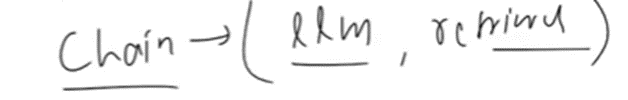 Chain → ( llm , retrieval )